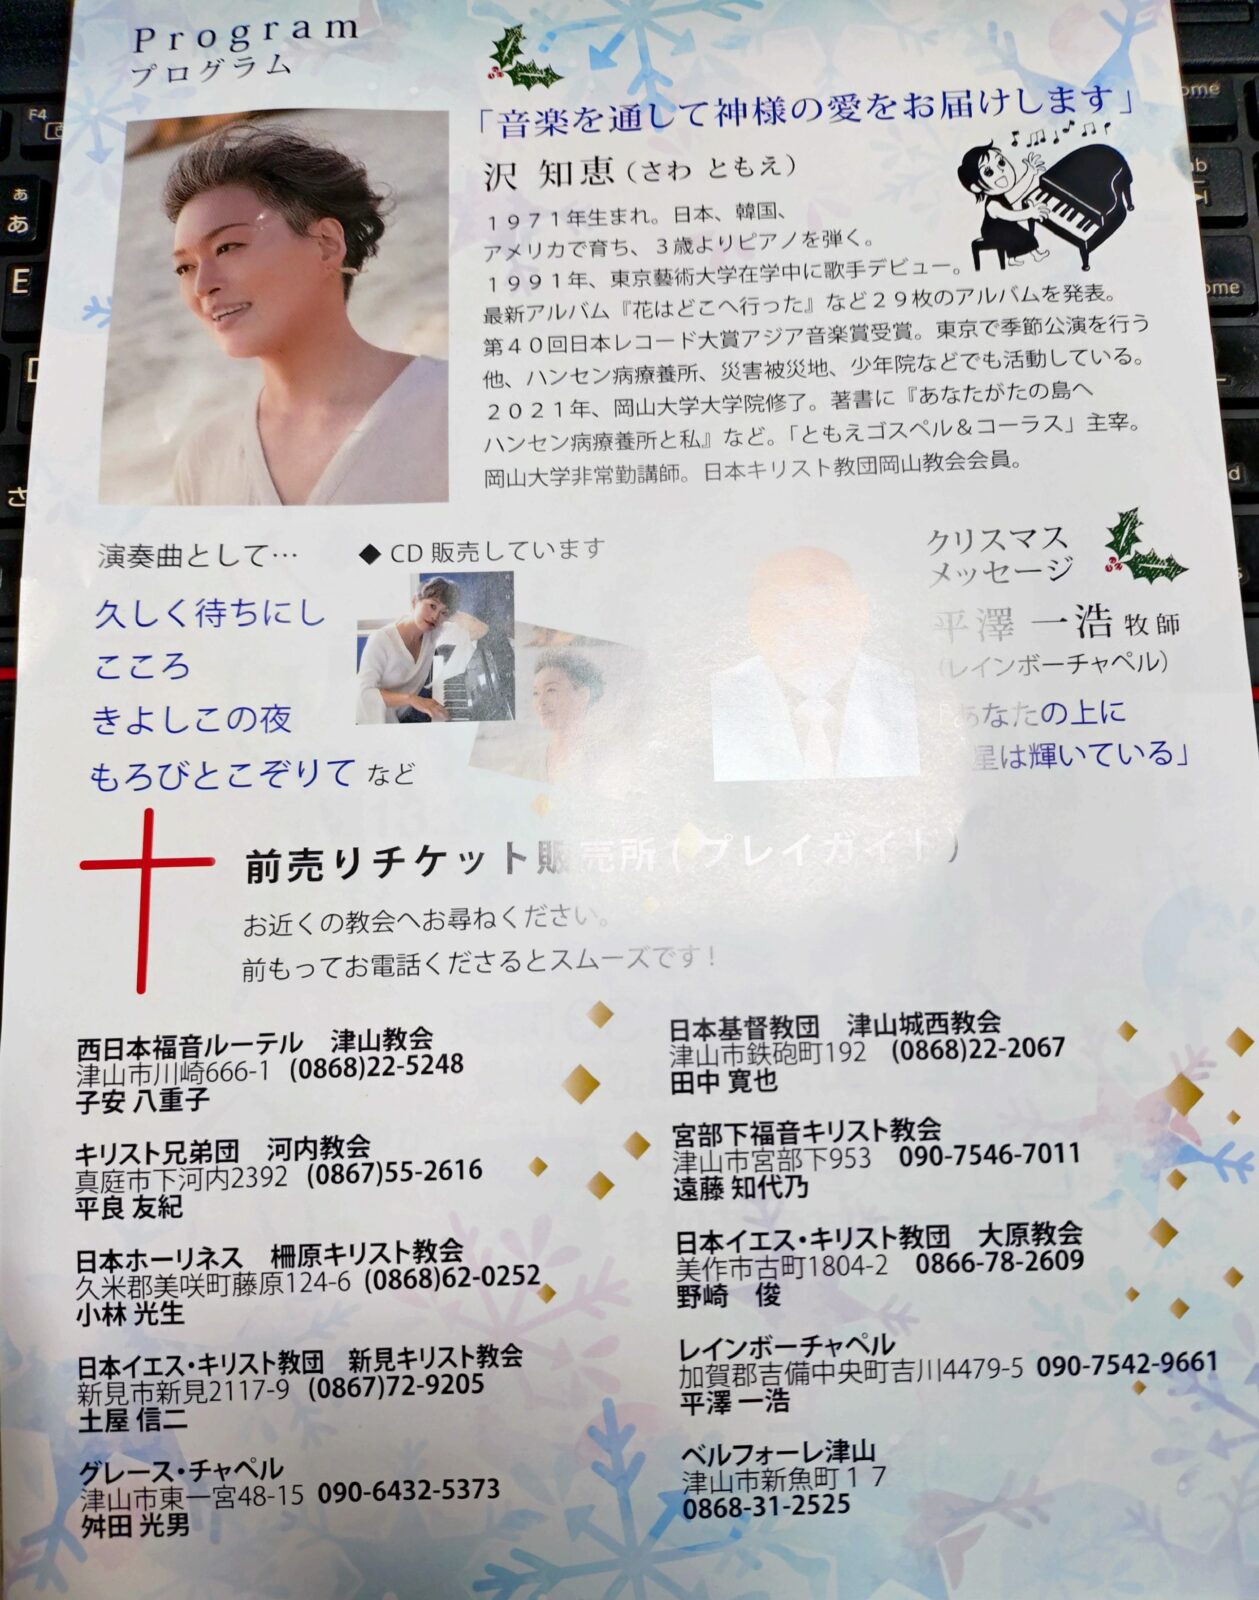 Program
プログラム
「音楽を通して神様の愛をお届けします」
沢 知恵（さわ ともえ）
１９７１年生まれ。日本、韓国、
アメリカで育ち、３歳よりピアノを弾く。
１９９１年、東京藝術大学在学中に歌手デビュー。
最新アルバム『花はどこへ行った』など２９枚のアルバムを発表。
第４０回日本レコード大賞アジア音楽賞受賞。東京で季節公演を行う
他、ハンセン病療養所、災害被災地、少年院などでも活動している。
２０２１年、岡山大学大学院修了。著書に『あなたがたの島へ
ハンセン病療養所と私』など。「ともえゴスペル＆コーラス」主宰。
岡山大学非常勤講師。日本キリスト教団岡山教会会員。
演奏曲として…
久しく待ちにし
こころ
きよしこの夜
もろびとこぞりて など
◆ CD 販売しています
クリスマス
メッセージ
平澤 一浩 牧師
（レインボーチャペル）
あなたの上に
星は輝いている」
前売りチケット販売所（プレイガイド）
お近くの教会へお尋ねください。
前もってお電話くださるとスムーズです！
西日本福音ルーテル　津山教会
津山市川崎666-1 (0868)22-5248
子安 八重子
キリスト兄弟団　河内教会
真庭市下河内2392 (0867)55-2616
平良 友紀
日本ホーリネス　柵原キリスト教会
久米郡美咲町藤原124-6 (0868)62-0252
小林 光生
日本イエス・キリスト教団　新見キリスト教会
新見市新見2117-9 (0867)72-9205
土屋 信二
グレース・チャペル
津山市東一宮48-15 090-6432-5373
舛田 光男
日本基督教団　津山城西教会
津山市鉄砲町192 (0868)22-2067
田中 寛也
宮部下福音キリスト教会
津山市宮部下953 090-7546-7011
遠藤 知代乃
日本イエス・キリスト教団　大原教会
美作市古町1804-2 0866-78-2609
野崎　俊
レインボーチャペル
加賀郡吉備中央町吉川4479-5 090-7542-9661
平澤 一浩
ベルフォーレ津山
津山市新魚町１７
0868-31-2525
F4
あ
E